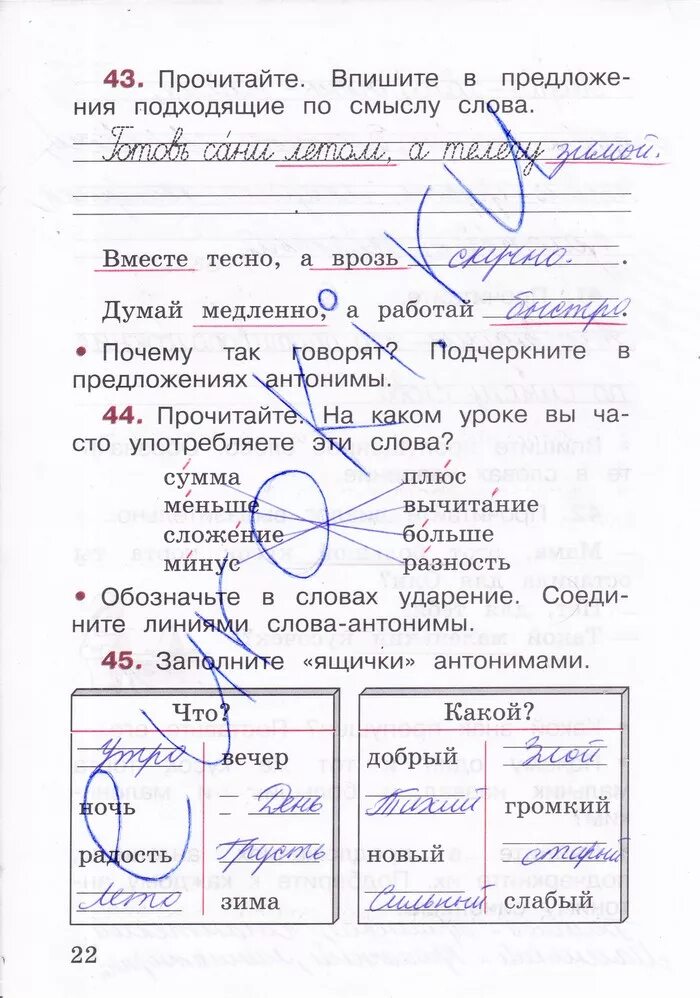 43. Прочитайте. Впишите в предложе-
ния подходящие по смыслу слова.
Готовь сáни летом, а телéгу зимой.
Вместе тесно, а врозь скучно. .
Думай медленно, а работай быстро.
• Почему так говорят? Подчеркните в
предложениях антонимы.
44. Прочитайте. На каком уроке вы ча-
сто употребляете эти слова?
сумма плюс
меньше вычитание
сложение больше
минус разность
• Обозначьте в словах ударение. Соеди-
ните линиями слова-антонимы.
45. Заполните «ящички» антонимами.
Что? Какой?
Утро вечер добрый Злой
ночь День Тихий громкий
радость Грусть новый старый
Лето зима Сильный слабый
22